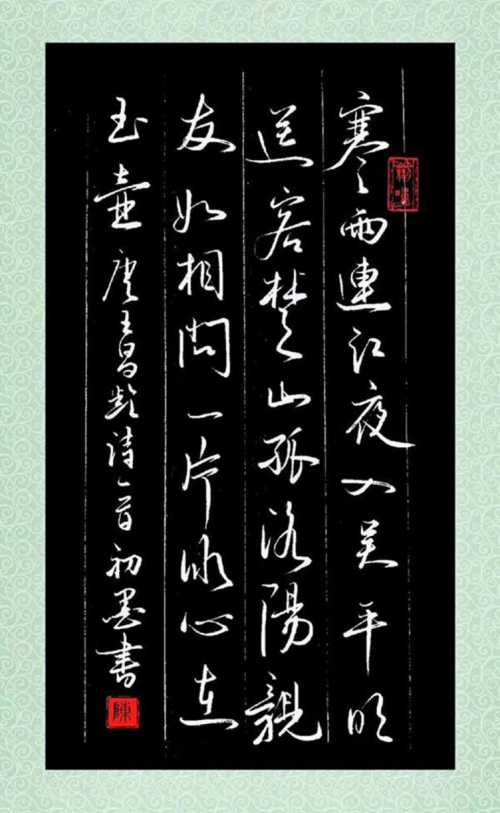 寒雨連江夜入吴平明
送客楚山孤洛陽親
友如相問一片冰心在
玉壺唐王昌齡詩一首初墨書
陳